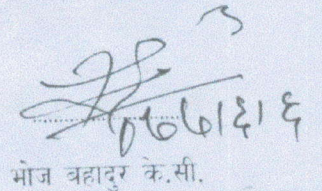 २०७७।६।६
भोज बहादुर के.सी.